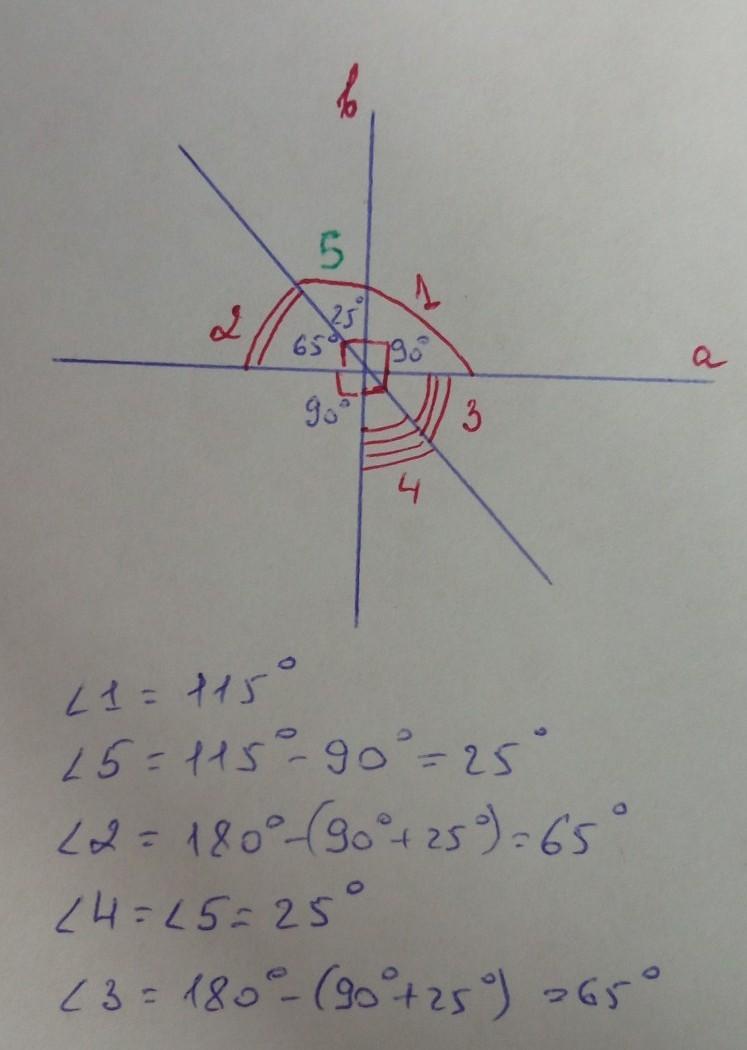 b
5
1
2
25°
65°
90°
a
90°
3
4
∠1 = 115°
∠5 = 115° - 90° = 25°
∠2 = 180° - (90° + 25°) = 65°
∠4 = ∠5 = 25°
∠3 = 180° - (90° + 25°) = 65°